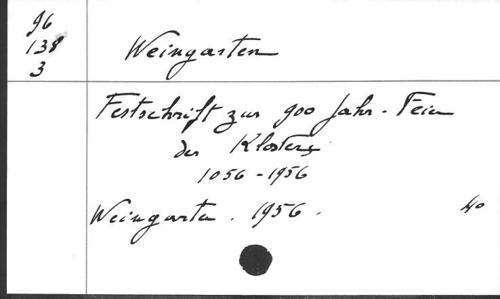 96
138
3
Weingarten
Festschrift zur 900 Jahr-Feier
des Klosters
1056-1956
Weingarten. 1956.
40